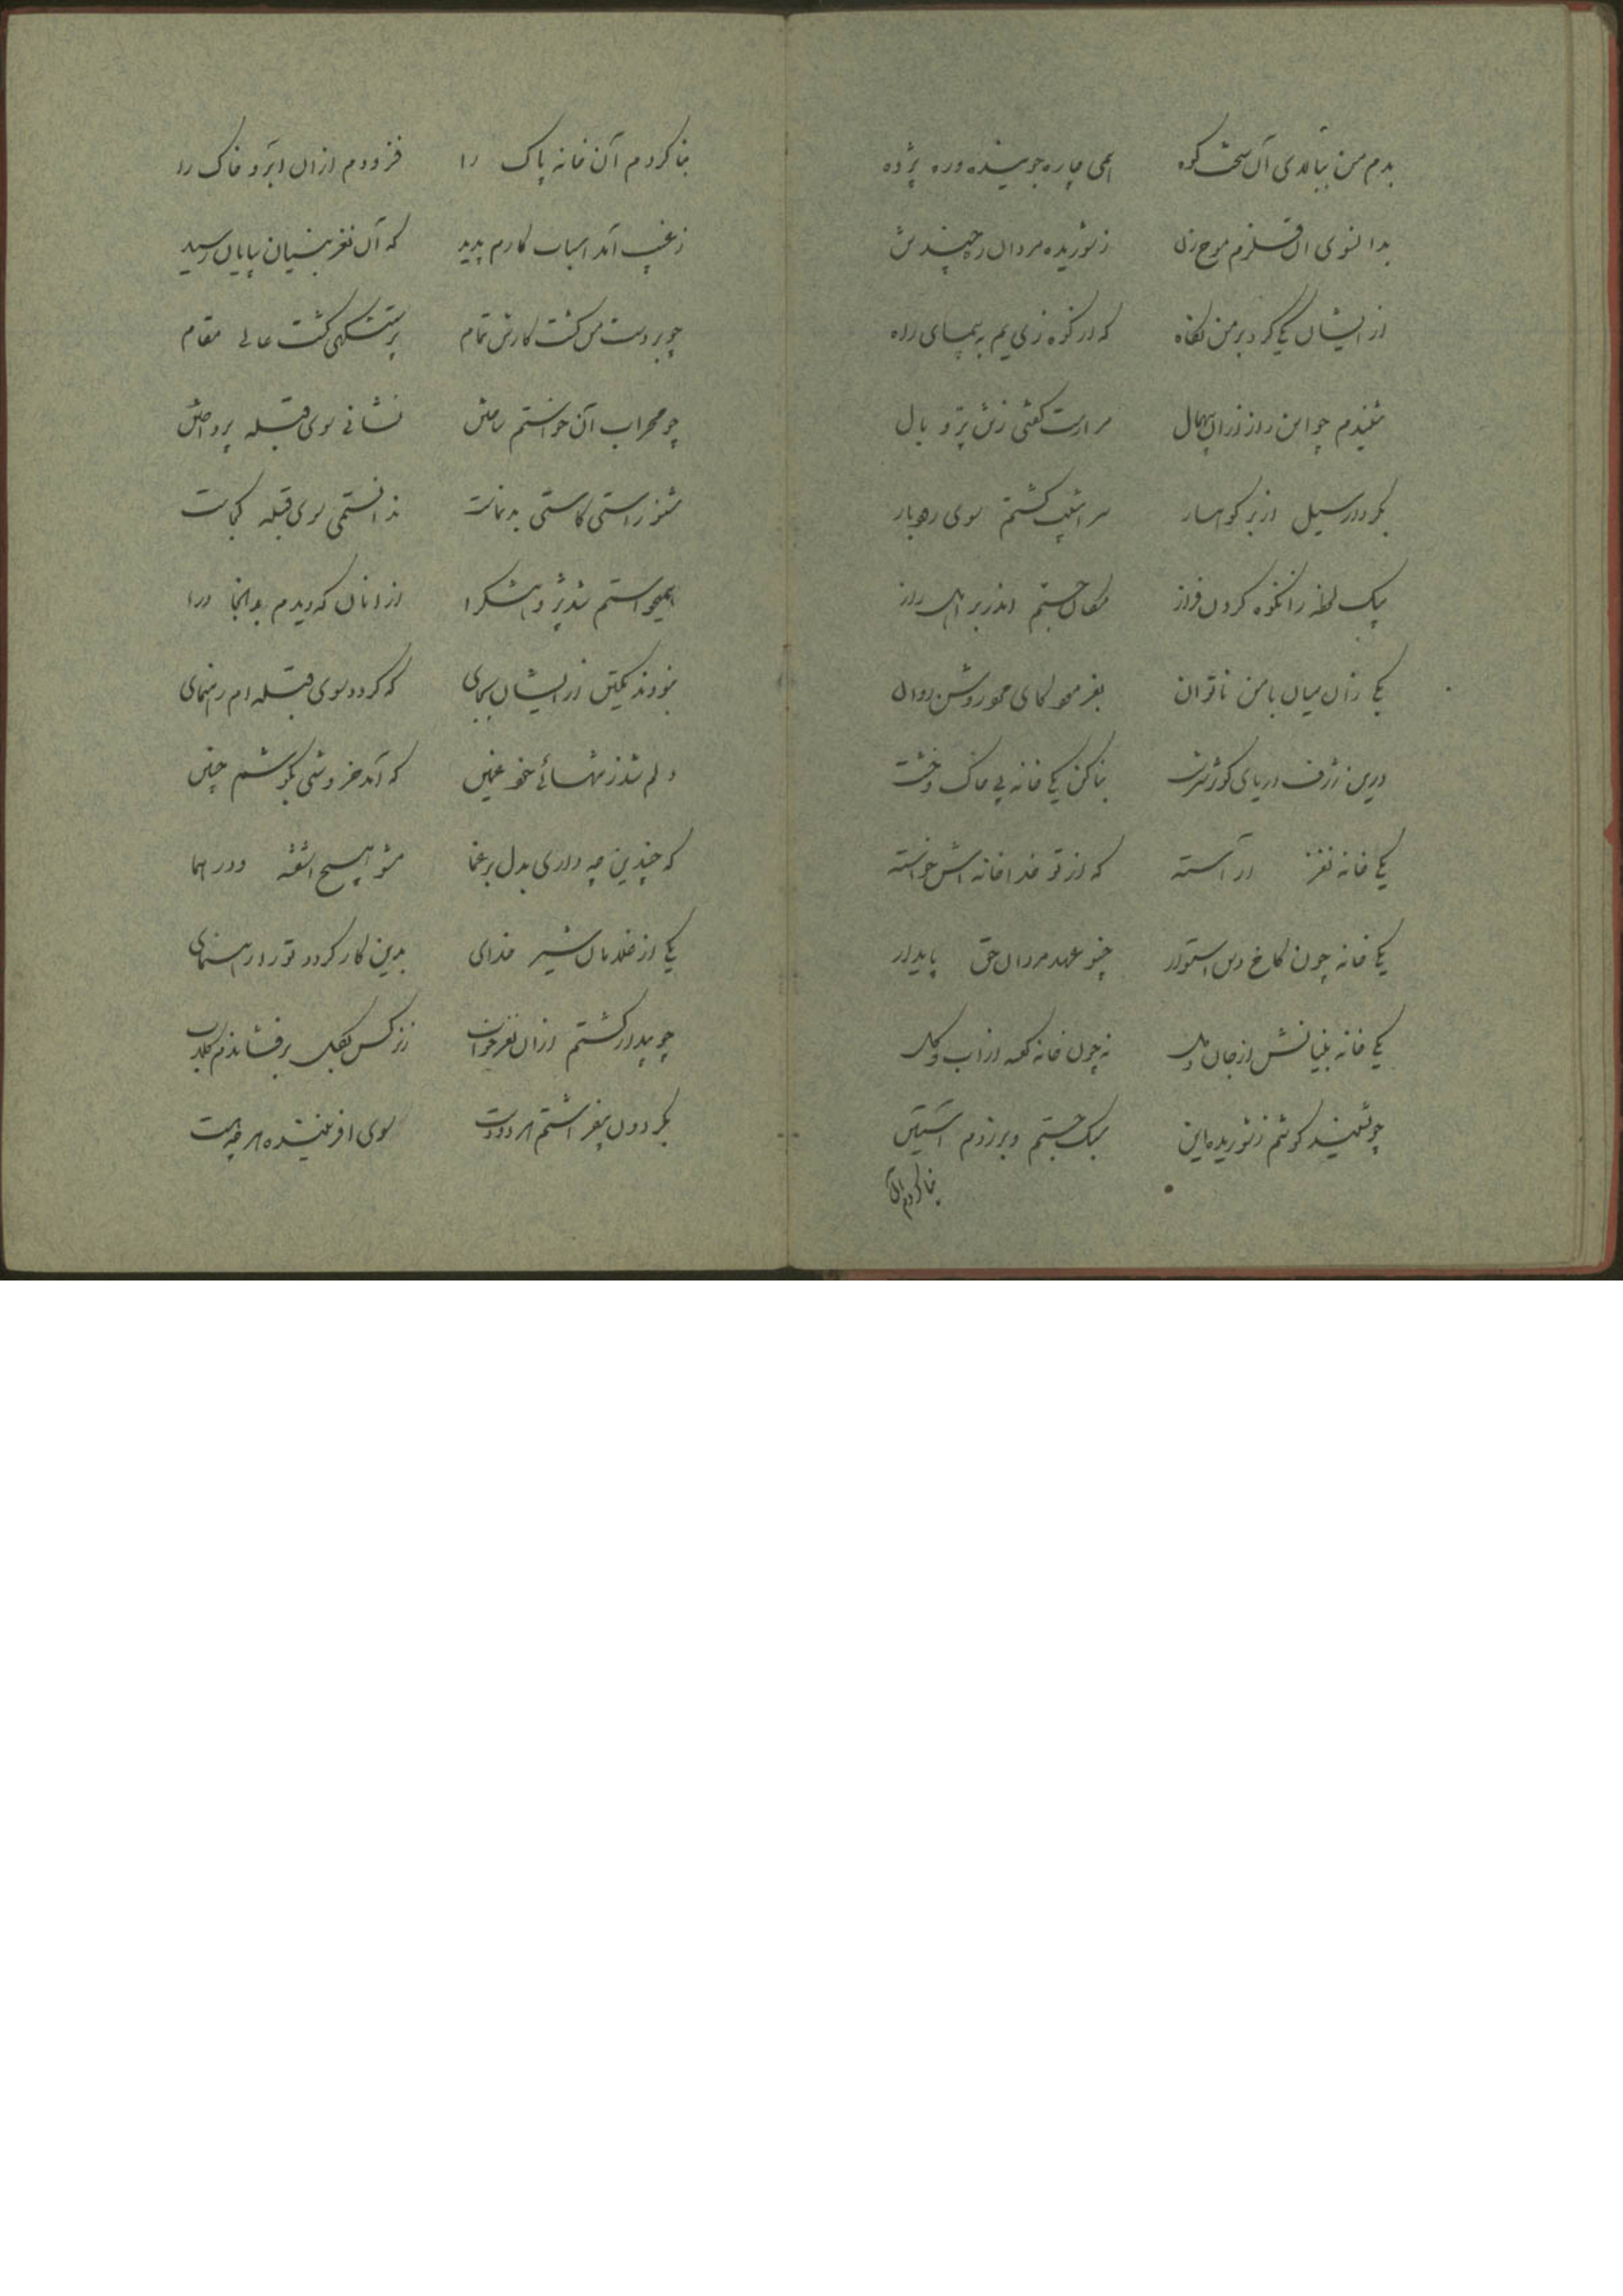 بدم من ببالای آن سخت کوه همی چاره جوینده وره پژوه
بدانسوی آن قلزم موج زن ز شوریده مردان چند تن
از ایشان یکی کرد بر من نگاه که از کوه زی یم به پیمای راه
شنیدم چو این راز زان مرا رست گفتی ز تن پر و بال
بکردار سیل از بر کوهسار سراشیب گشتم سوی رودبار
بیک لحظه زانکوه گردن فراز مکان جستم اندر بر اهل راز
یکی زان میان با من ناتوان بفرمود کای مرد روشن روان
درین ژرف دریای بنا کن یکی خانه بی خاک و خشت
یکی خانه نغز آراسته که از تو خدا خانه اش خواسته
یکی خانه چون کاخ دین استوار چنو عهد مردان حق پایدار
یکی خانه بنیانش از جان و دل نه چون خانه کعبه از آب و گل
چو بشنید گوشم ز شوریده این سبک جستم و برزدم آستین
بنا کردم آن
بنا کردم آن خانه پاک را فزودم ازان آبرو خاک را
ز غیب آمد اسباب کارم پدید که آن نغز بنیان بپایان رسید
چو بر دست من گشت کارش تمام پرستشگهی گشت عالی مقام
چو محراب آن خواستم ساختن نشانی سوی قبله پرداختن
شنو راستی کاستی بد نخاست ندانستمی سوی قبله کجاست
همیخواستم شد پژوهشگرا ازانان که دیدم بدانجا درا
نبودند یکتن از ایشان بجای که گردد سوی قبله ام رهنمای
دلم شد ز تنهائی خود غمین که آمد خروشی بگوشم چنین
که چندین چه داری بدل بر غما مشو هیچ آشفته و درهما
یکی از غلامان شیر خدای بدین کار گردد تو را رهنمای
چو بیدار گشتم ازان نغز خواب ز نرگس بگل برفشاندم گلاب
بگردون بر افراشتم هر دو دست سوی آفریننده هر چه هست